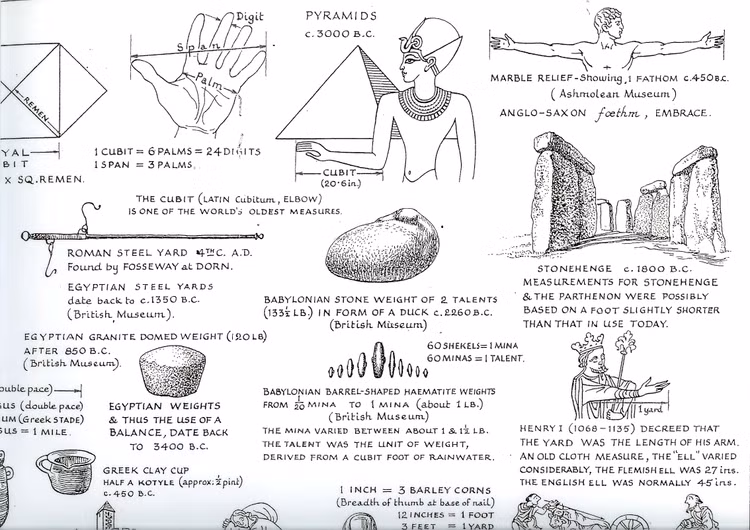 Digit
Span
Palm
REMEN
YAL
BIT
X SQ.REMEN.
1 CUBIT = 6 PALMS = 24 DIGITS
1 SPAN = 3 PALMS.
PYRAMIDS
c. 3000 B.C.
CUBIT
(20·6in.)
MARBLE RELIEF-Showing, 1 FATHOM c.450B.C.
(Ashmolean Museum)
ANGLO-SAXON fœthm, EMBRACE.
THE CUBIT (LATIN Cubitum, ELBOW)
IS ONE OF THE WORLD'S OLDEST MEASURES.
ROMAN STEEL YARD 4TH C. A.D.
Found by FOSSEWAY at DORN.
EGYPTIAN STEEL YARDS
date back to c.1350 B.C.
(British Museum).
BABYLONIAN STONE WEIGHT OF 2 TALENTS
(133½ LB.) IN FORM OF A DUCK c. 2260B.C.
(British Museum)
STONEHENGE c. 1800 B.C.
MEASUREMENTS FOR STONEHENGE
& THE PARTHENON WERE POSSIBLY
BASED ON A FOOT SLIGHTLY SHORTER
THAN THAT IN USE TODAY.
EGYPTIAN GRANITE DOMED WEIGHT (120LB)
AFTER 850 B.C.
(British Museum).
60 SHEKELS = 1 MINA
60 MINAS = 1 TALENT.
ouble pace)
SUS (double pace)
UM (Greek STADE)
SUS = 1 MILE.
EGYPTIAN WEIGHTS
& THUS THE USE OF A
BALANCE, DATE BACK
TO 3400 B.C.
BABYLONIAN BARREL-SHAPED HAEMATITE WEIGHTS
FROM 1/20 MINA TO 1 MINA (about 1 LB.)
(British Museum)
THE MINA VARIED BETWEEN ABOUT 1 & 1½ LB.
THE TALENT WAS THE UNIT OF WEIGHT,
DERIVED FROM A CUBIT FOOT OF RAINWATER.
1 yard
HENRY I (1068-1135) DECREED THAT
THE YARD WAS THE LENGTH OF HIS ARM.
AN OLD CLOTH MEASURE, THE "ELL" VARIED
CONSIDERABLY, THE FLEMISH ELL WAS 27 ins.
THE ENGLISH ELL WAS NORMALLY 45 ins.
GREEK CLAY CUP
HALF A KOTYLE (approx: ½ pint)
c. 450 B.C.
1 INCH = 3 BARLEY CORNS
(Breadth of thumb at base of nail)
12 INCHES = 1 FOOT
3 FEET = 1 YARD